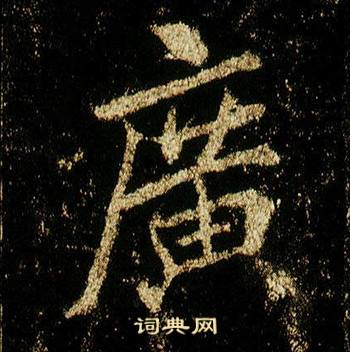 廣
词典网